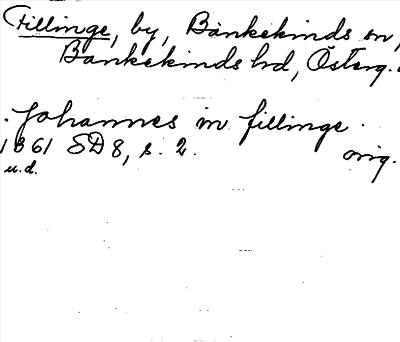 Fillinge, by, Bankekinds sn,
Bankekinds hd, Österg.
Johannes in fillinge.
1361 SD 8, s. 2. orig.
u.d.